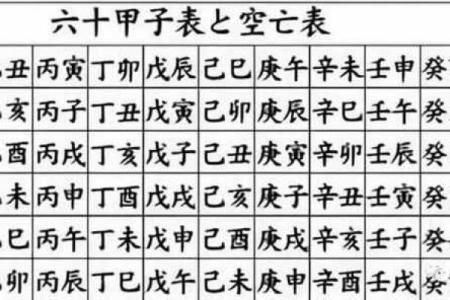 六十甲子表と空亡表
丑 丙寅 丁卯 戊辰 己巳 庚午 辛未 壬申 癸
亥 丙子 丁丑 戊寅 己卯 庚辰 辛巳 壬午 癸
酉 丙戌 丁亥 戊子 己丑 庚寅 辛卯 壬辰 癸
未 丙申 丁酉 戊戌 己亥 庚子 辛丑 壬寅 癸
巳 丙午 丁未 戊申 己酉 庚戌 辛亥 壬子 癸
卯 丙辰 丁巳 戊午 己未 庚申 辛酉 壬戌 癸